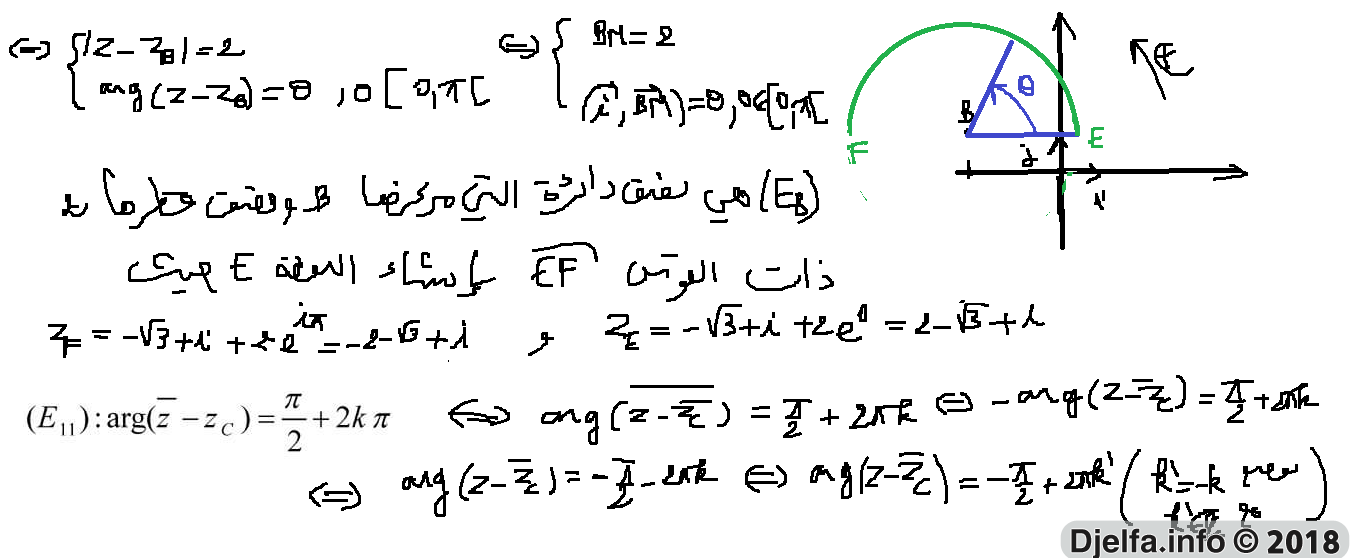 ⇔ { |z - z_B| = 2 ⇔ { BM = 2
arg(z - z_B) = θ , θ [0, π[ (i, BM) = θ, θ∈[0, π[
B θ E F j i
(E_B) هي نصف دائرة التي مركزها B ونصف قطرها 2
ذات القوس EF بإستثناء النقطة E حيث
z_F = -√3 + i + 2e^{iπ} = -2 - √3 + i , z_E = -√3 + i + 2e^0 = 2 - √3 + i
(E_{11}) : arg(z̅ - z_C) = π/2 + 2kπ ⇔ arg(\overline{z - \overline{z_C}}) = π/2 + 2πk ⇔ -arg(z - \overline{z_C}) = π/2 + 2πk
⇔ arg(z - \overline{z_C}) = -π/2 - 2πk ⇔ arg(z - \overline{z_C}) = -π/2 + 2πk' ( k' = -k
Djelfa.info © 2018